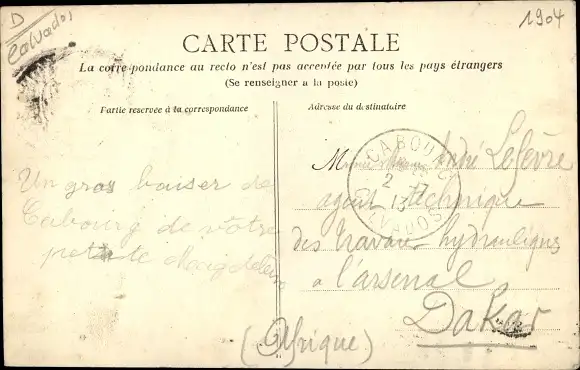 D
Calvados
1904
CARTE POSTALE
La correspondance au recto n'est pas acceptée par tous les pays étrangers
(Se renseigner à la poste)
Partie reservée à la correspondance
Adresse du destinataire
Un gros baiser de
Cabourg de votre
petite Magdeleine
CABOURG
2
13
CALVADOS
André Lefèvre
agent technique
des travaux hydrauliques
a l'arsenal
Dakar
(Afrique)